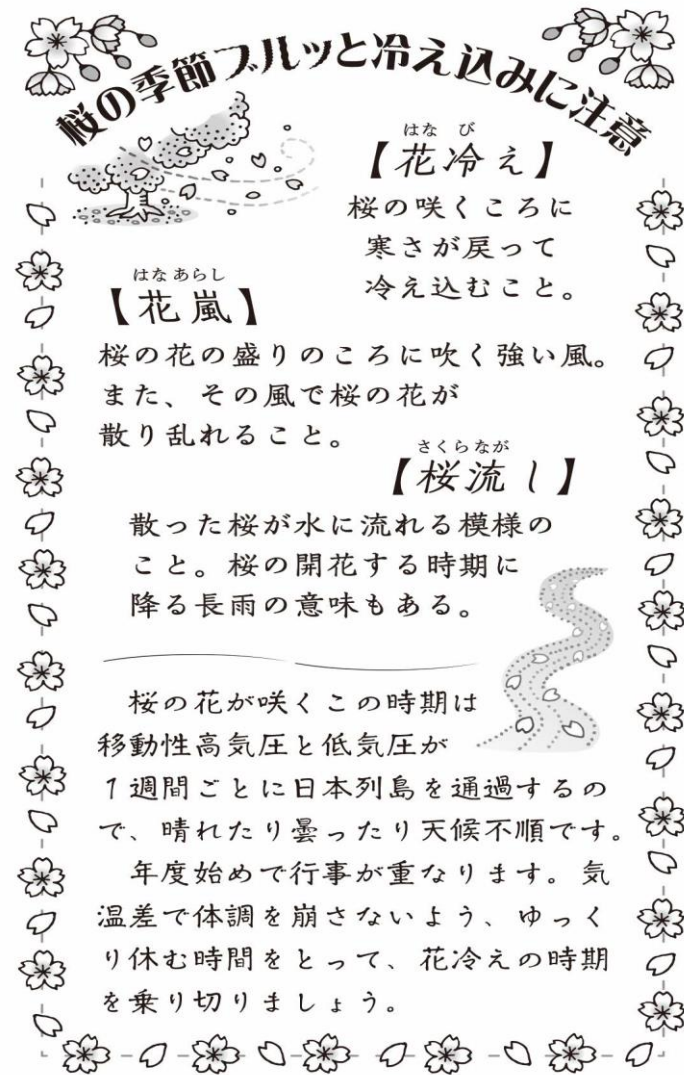 桜の季節ブルッと冷え込みに注意
はな び
【花冷え】
桜の咲くころに
寒さが戻って
冷え込むこと。
はなあらし
【花嵐】
桜の花の盛りのころに吹く強い風。
また、その風で桜の花が
散り乱れること。
さくらなが
【桜流し】
散った桜が水に流れる模様の
こと。桜の開花する時期に
降る長雨の意味もある。
桜の花が咲くこの時期は
移動性高気圧と低気圧が
1週間ごとに日本列島を通過するの
で、晴れたり曇ったり天候不順です。
年度始めで行事が重なります。気
温差で体調を崩さないよう、ゆっく
り休む時間をとって、花冷えの時期
を乗り切りましょう。